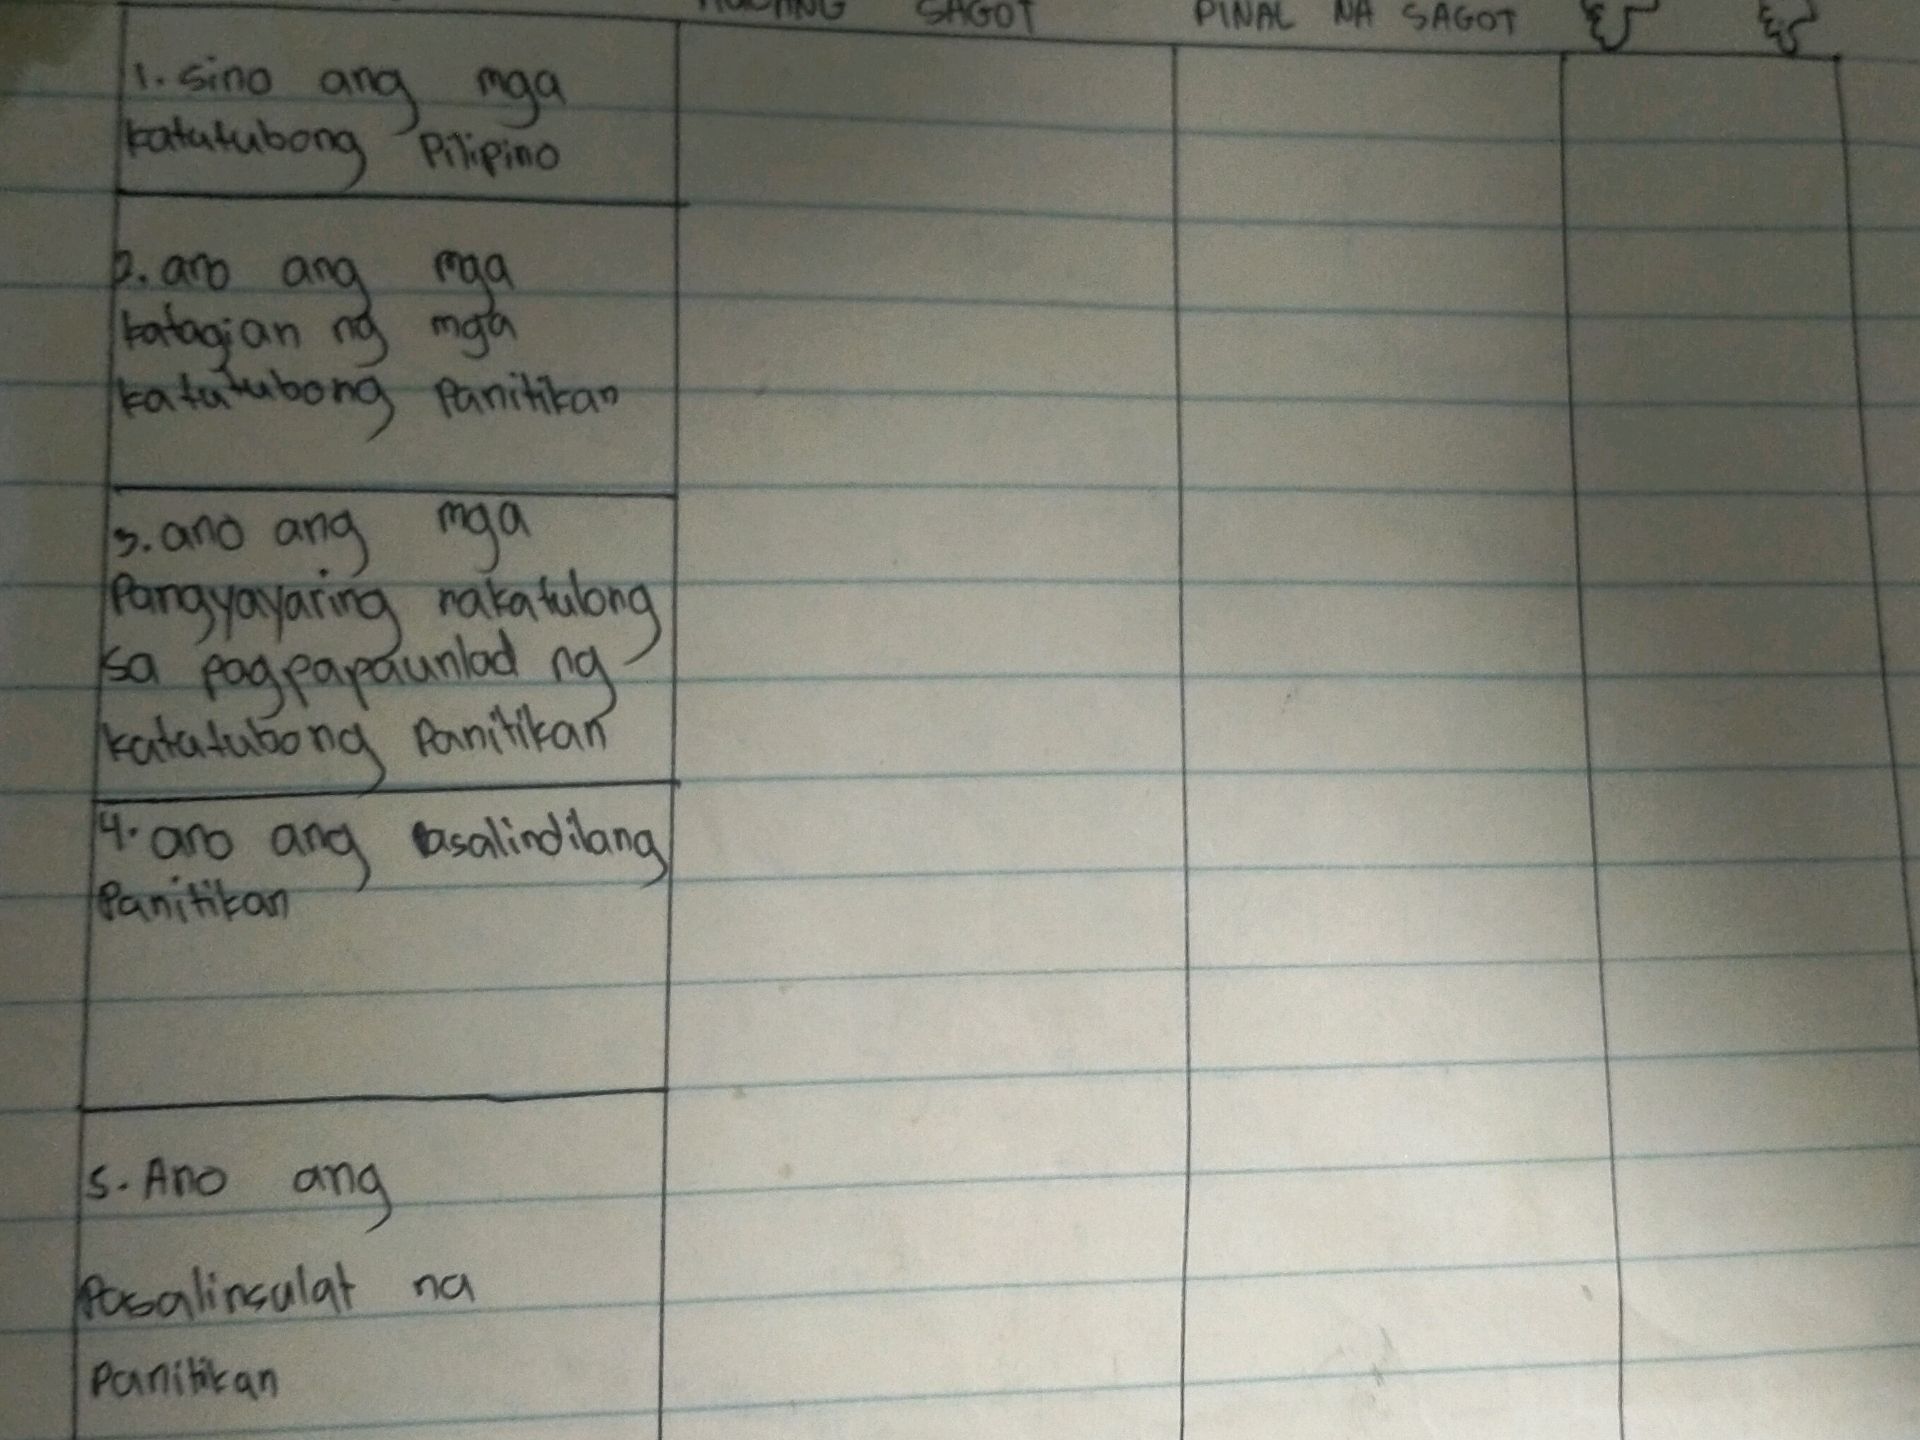 SAGOT
PINAL NA SAGOT
1. sino ang mga
katutubong Pilipino
2. ano ang mga
katagian ng mga
katutubong Panitikan
3. ano ang mga
Pangyayaring nakatulong
sa pagpapaunlad ng
katutubong Panitikan
4. ano ang asalindilang
Panitikan
5. Ano ang
Pasalinsulat na
Panitikan